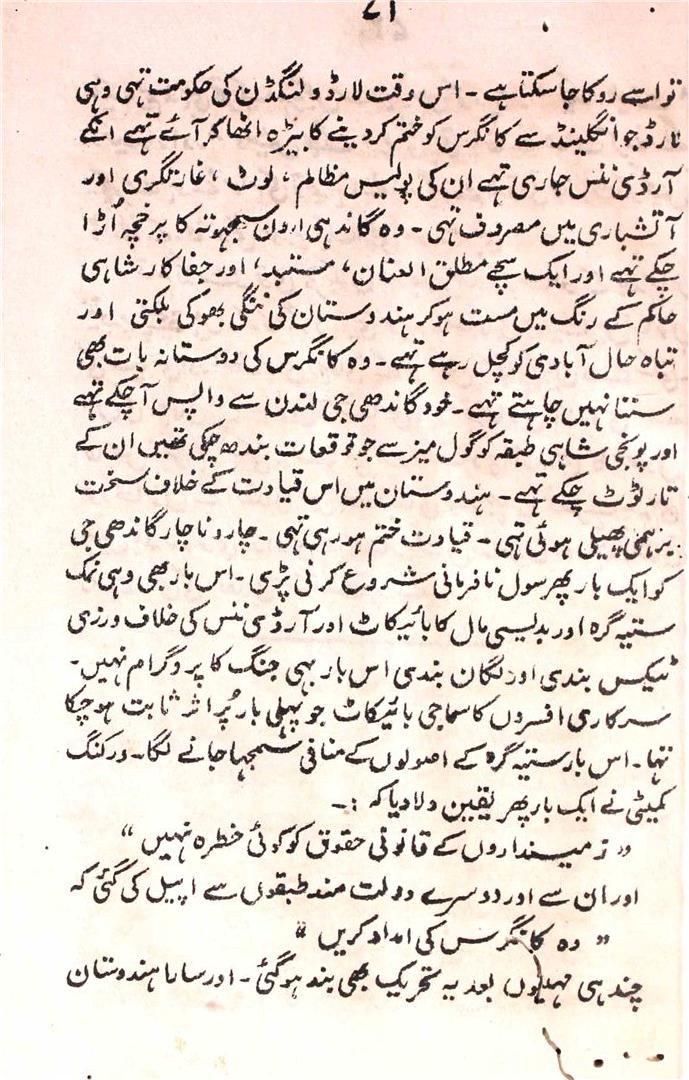 ۷۱
تو اسے روکا جا سکتا ہے ۔ اس وقت لارڈ ولنگڈن کی حکومت تہی وہی
لارڈ جو انگلینڈ سے کانگرس کو ختم کر دینے کا بیڑہ اٹھا کر آئے تہے انکے
آرڈی ننس جاری تہے ان کی پولیس مظالم ، لوٹ ، غارتگری اور
آتشباری میں مصروف تہی ۔ وہ گاندہی ارون سمجہوتہ کا پرخچہ اُڑا
چکے تہے اور ایک سچے مطلق العنان ، مستبد ، اور جفا کار شاہی
حاکم کے رنگ میں مست ہو کر ہندوستان کی ننگی بھوکی بلکتی اور
تباہ حال آبادی کو کچل رہے تہے ۔ وہ کانگرس کی دوستانہ بات بھی
سننا نہیں چاہتے تہے ۔ خود گاندھی جی لندن سے واپس آ چکے تہے
اور پونجی شاہی طبقہ کو گول میز سے جو توقعات بندھ چکی تھیں ان کے
تار ٹوٹ چکے تہے ۔ ہندوستان میں اس قیادت کے خلاف سخت
برہمی پھیلی ہوئی تہی ۔ قیادت ختم ہو رہی تہی ۔ چار و ناچار گاندھی جی
کو ایک بار پھر سول نافرمانی شروع کرنی پڑی ۔ اس بار بھی وہی نمک
ستیہ گرہ اور بدیسی مال کا بائیکاٹ اور آرڈی ننس کی خلاف ورزی
ٹیکس بندی اور لگان بندی اس بار بہی جنگ کا پروگرام نہیں ۔
سرکاری افسروں کا سماجی بائیکاٹ جو پہلی بار پُر اثر ثابت ہو چکا
تہا ۔ اس بار ستیہ گرہ کے اصولوں کے منافی سمجہا جانے لگا ۔ ورکنگ
کمیٹی نے ایک بار پھر یقین دلا دیا کہ :۔
” زمینداروں کے قانونی حقوق کو کوئی خطرہ نہیں “
اور ان سے اور دوسرے دولت مند طبقوں سے اپیل کی گئی کہ
” وہ کانگرس کی امداد کریں “
چند ہی مہینوں بعد یہ تحریک بھی بند ہو گئی ۔ اور سارا ہندوستان